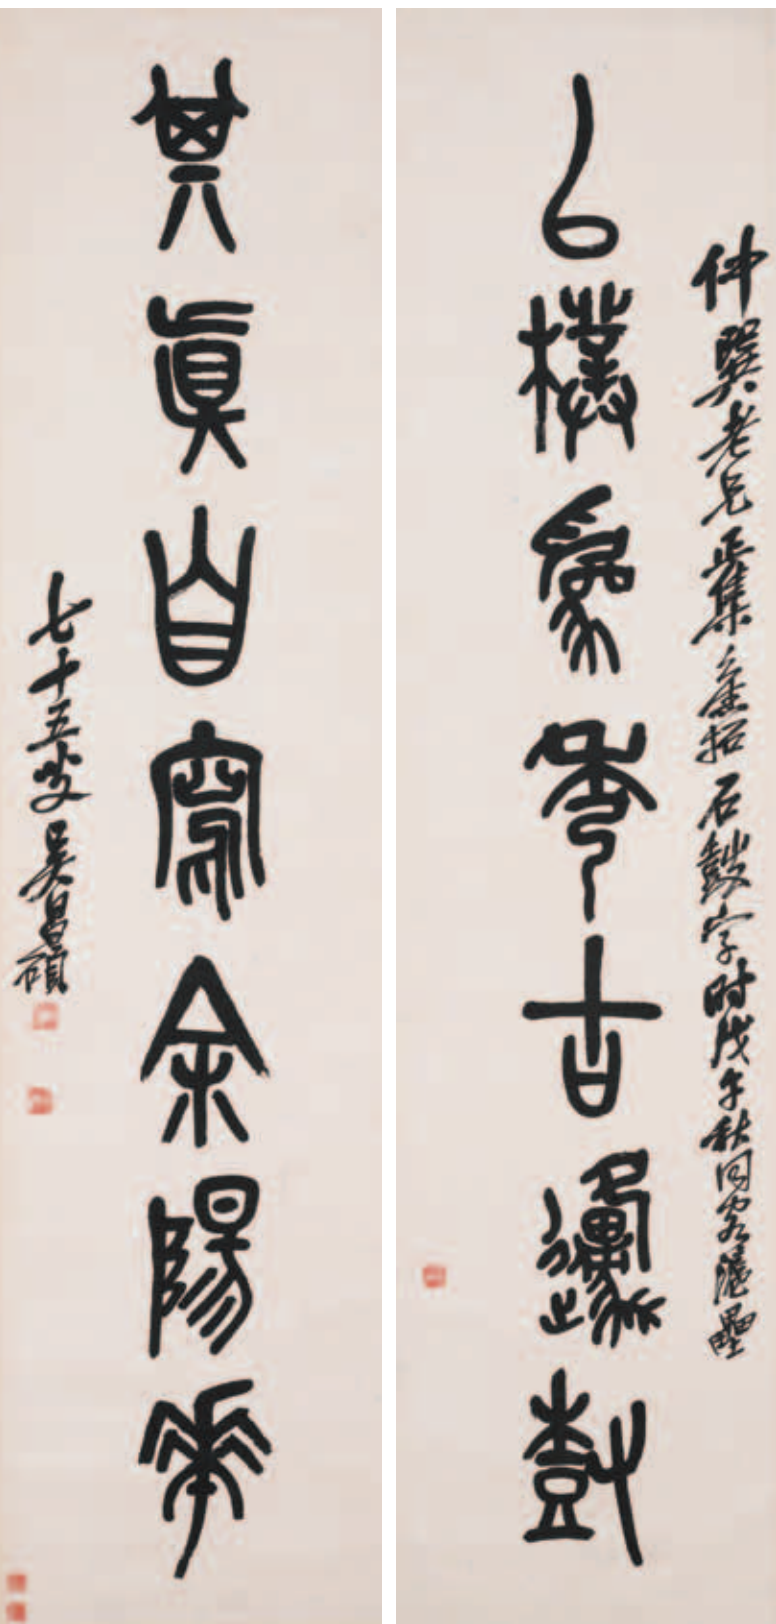 仲巽老兄正集舊拓石鼓字时戊午秋同客滬壘
㠯樸為秀古邍尌
其眞自寫余陽華
七十五叟吴昌碩